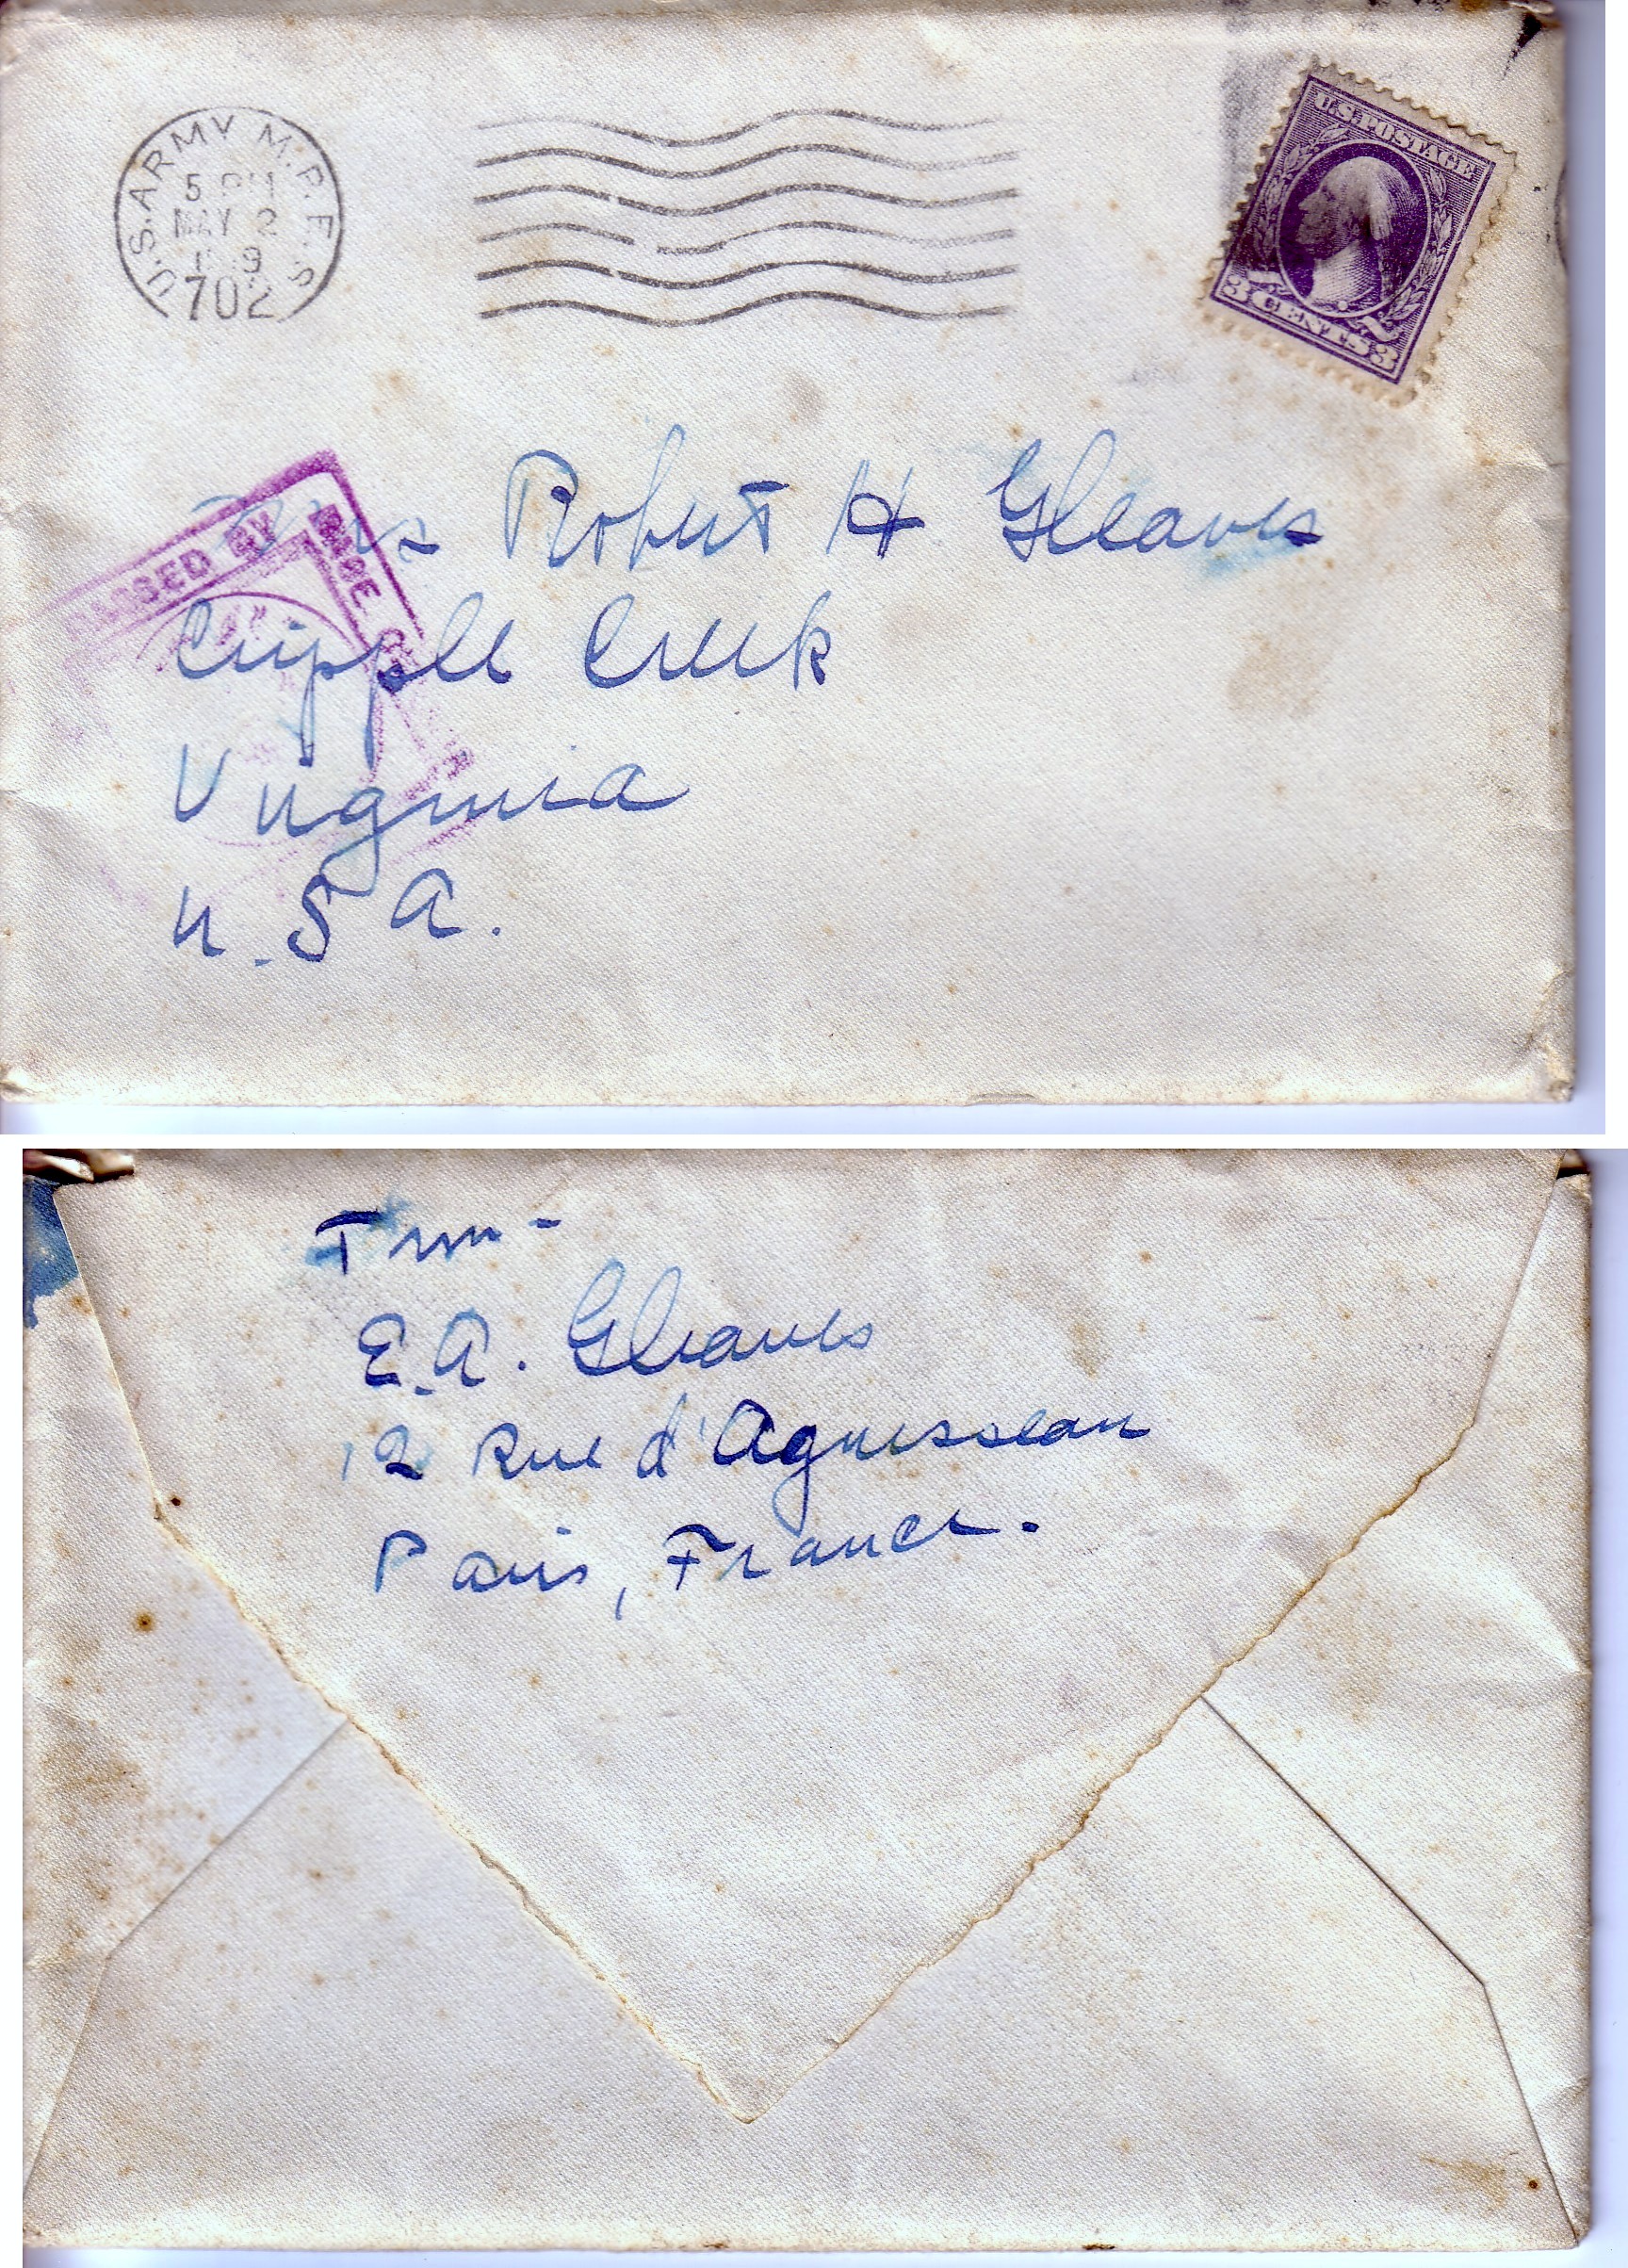 U.S. ARMY M.P.E.S.
5 PM
MAY 2
702
U.S. POSTAGE
3 CENTS 3
PASSED BY BASE
Robert H Gleaves
Cripple Creek
Virginia
U.S A.
From -
E.A. Gleaves
12 Rue d'Aguesseau
Paris, France.